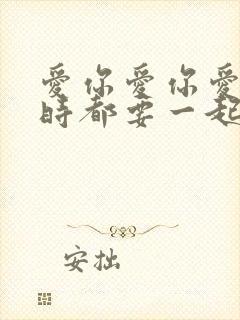 愛你愛你愛
時都要一起
安拙